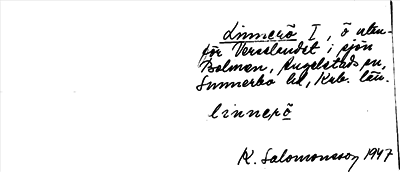 Linnerö I, ö utan-
för Verelundet i sjön
Bolmen, Angelstads sn,
Sunnerbo hd, Krb. län.
linnerö
K. Salomonsson 1947